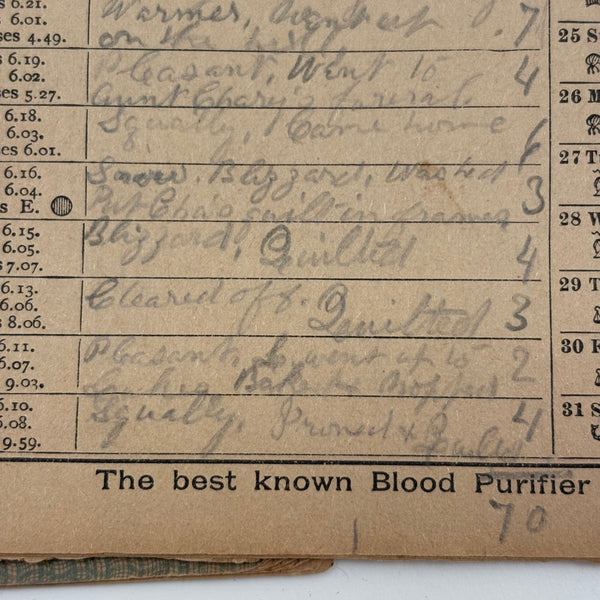 s 6.21.
s 6.01.
ses 4.49.
Warmer, Went up
on the hill
7
25 S
s 6.19.
s 6.02.
ses 5.27.
Pleasant, Went to
Aunt funeral
4
26 M
s 6.18.
s 6.03.
es 6.01.
Squally, Came home
6
27 T
s 6.16.
s 6.04.
s E.
Snow. Blizzard, Washed
Put quilt in frames
3
28 W
6.15.
6.05.
s 7.07.
Blizzard, Quilted
4
29 T
6.13.
6.06.
s 8.06.
Cleared off.
Quilted
3
30 F
6.11.
6.07.
9.03.
Pleasant, went up to
Baked & mopped
2
31 S
6.10.
6.08.
9.59.
Squally,
4
The best known Blood Purifier
70